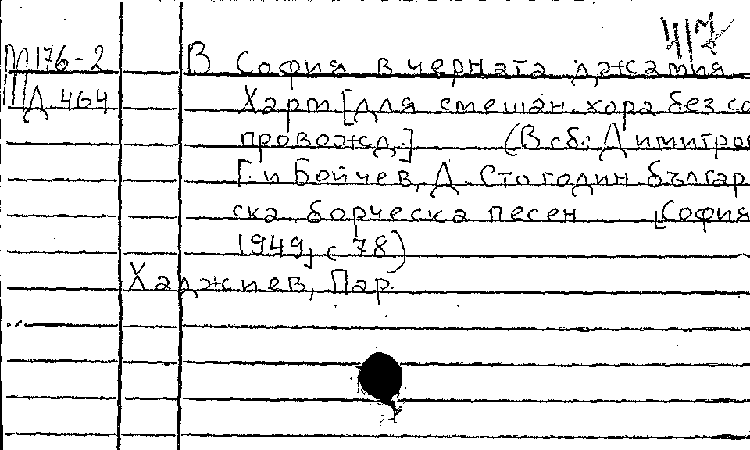 417
М176-2 В София в черната джамия
Д 464 Харм. [для смешан. хора без со
провожд.] (В сб.: Димитров
Г. и Бойчев, Д. Сто годин българ
ска борческа песен [София
1949] с 78)
Хаджиев, Пар.